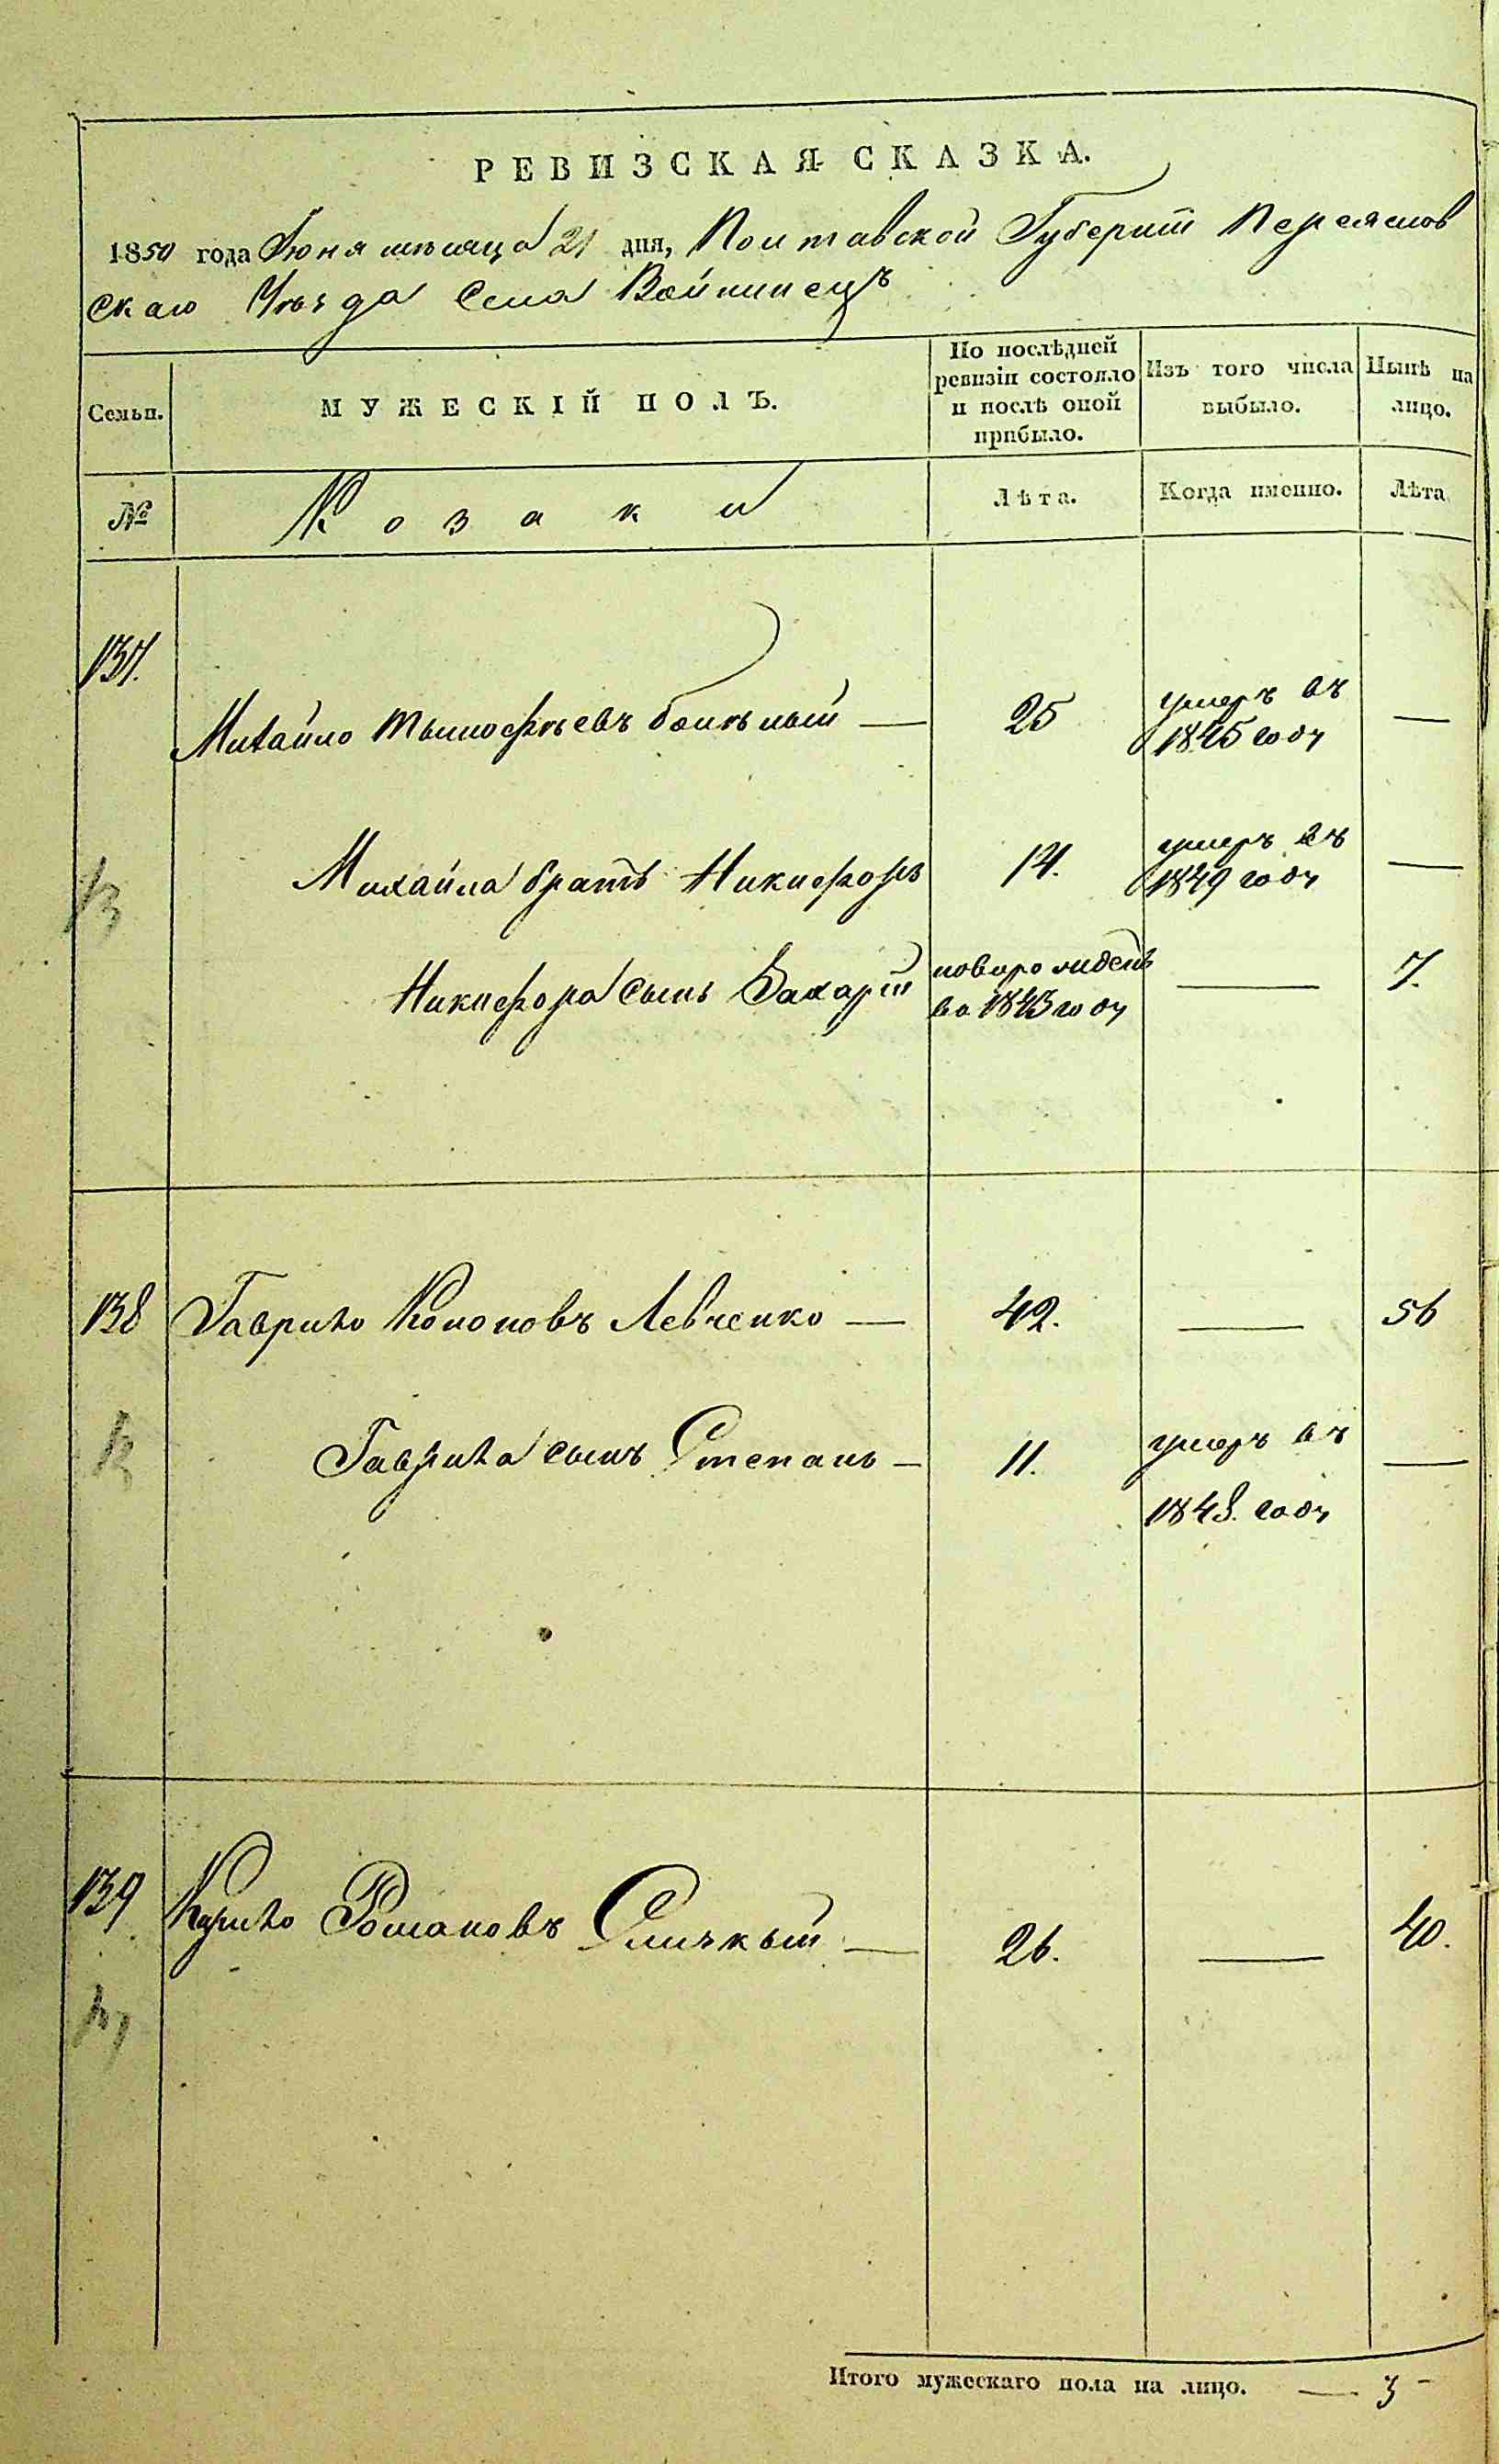 РЕВИЗСКАЯ СКАЗКА.
1850 года Іюня мѣсяца 21 дня, Полтавской Губерніи Переяслов
скаго Уѣзда Села Войтинецъ
Семьи.
МУЖЕСКІЙ ПОЛЪ.
По послѣдней
ревизіи состояло
и послѣ оной
прибыло.
Изъ того числа
выбыло.
Нынѣ на
лицо.
№
Козаки
Лѣта.
Когда именно.
Лѣта
137.
Михайло Тимофѣевъ — 25 умеръ въ —
1845 году
Михайла братъ Никифоръ 14. умеръ въ —
1849 году
Никифора сынъ Захарій новорожденъ — 7.
во 1843 году
138 Гаврило Кононовъ Левченко — 42. — 56
Гаврила сынъ Степанъ — 11. умеръ въ —
1848. году
139 Кирило Романовъ — 26. — 40.
Итого мужескаго пола на лицо. — 3 -